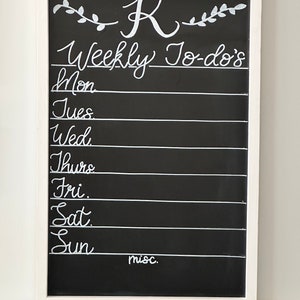 K
Weekly To-do's
Mon.
Tues.
Wed.
Thurs.
Fri.
Sat.
Sun.
misc.